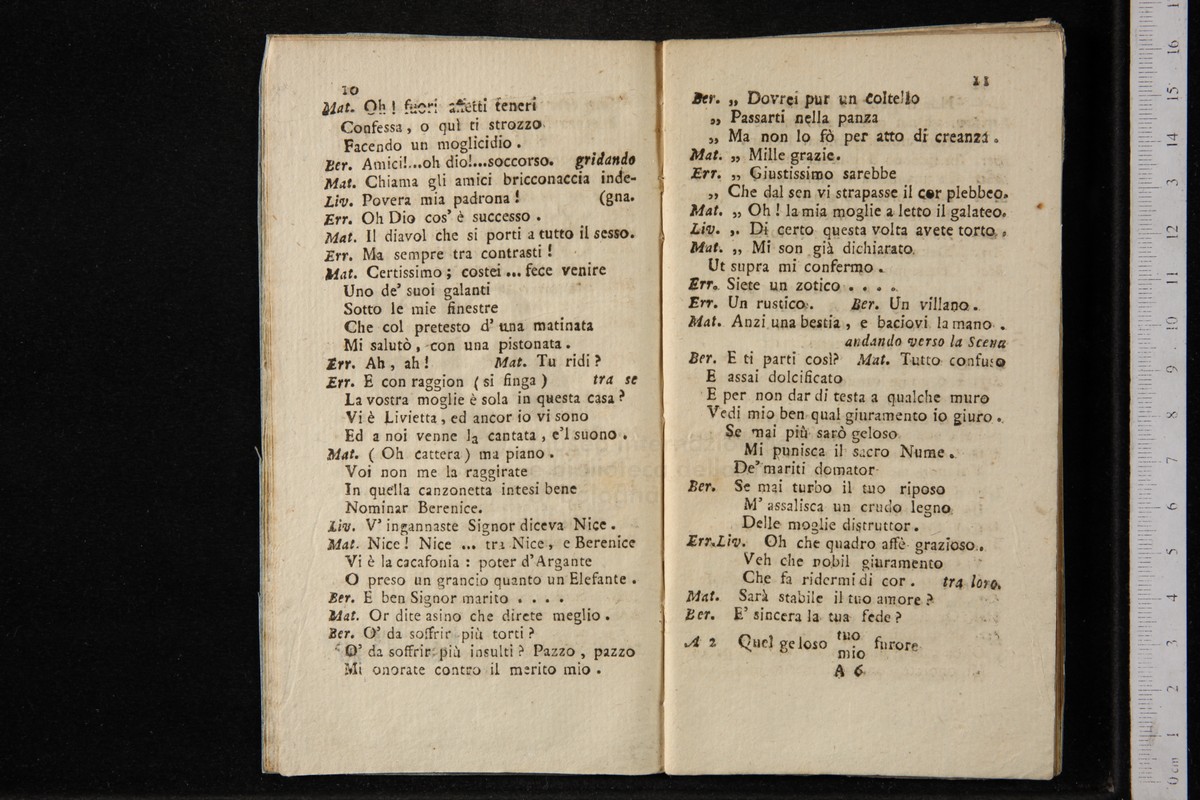 10
Mat. Oh! fuori affetti teneri
Confessa, o quì ti strozzo
Facendo un moglicidio.
Ber. Amici!...oh dio!...soccorso. gridando
Mat. Chiama gli amici bricconaccia inde-
Liv. Povera mia padrona! (gna.
Err. Oh Dio cos' è successo.
Mat. Il diavol che si porti a tutto il sesso.
Err. Ma sempre tra contrasti!
Mat. Certissimo; costei ... fece venire
Uno de' suoi galanti
Sotto le mie finestre
Che col pretesto d' una matinata
Mi salutò, con una pistonata.
Err. Ah, ah! Mat. Tu ridi?
Err. E con raggion (si finga) tra se
La vostra moglie è sola in questa casa?
Vi è Livietta, ed ancor io vi sono
Ed a noi venne la cantata, e'l suono.
Mat. (Oh cattera) ma piano.
Voi non me la raggirate
In quella canzonetta intesi bene
Nominar Berenice.
Liv. V' ingannaste Signor diceva Nice.
Mat. Nice! Nice ... tra Nice, e Berenice
Vi è la cacafonia: poter d'Argante
O preso un grancio quanto un Elefante.
Ber. E ben Signor marito . . . .
Mat. Or dite asino che direte meglio.
Ber. O' da soffrir più torti?
O' da soffrir più insulti? Pazzo, pazzo
Mi onorate contro il merito mio.
11
Ber. „ Dovrei pur un coltello
„ Passarti nella panza
„ Ma non lo fò per atto di creanza.
Mat. „ Mille grazie.
Err. „ Giustissimo sarebbe
„ Che dal sen vi strapasse il cor plebbeo.
Mat. „ Oh! la mia moglie a letto il galateo.
Liv. „ Di certo questa volta avete torto.
Mat. „ Mi son già dichiarato
Ut supra mi confermo.
Err. Siete un zotico . . . .
Err. Un rustico. Ber. Un villano.
Mat. Anzi una bestia, e baciovi la mano.
andando verso la Scena
Ber. E ti parti così? Mat. Tutto confuso
E assai dolcificato
E per non dar di testa a qualche muro
Vedi mio ben qual giuramento io giuro.
Se mai più sarò geloso
Mi punisca il sacro Nume.
De' mariti domator
Ber. Se mai turbo il tuo riposo
M' assalisca un crudo legno
Delle moglie distruttor.
Err.Liv. Oh che quadro affè grazioso.
Veh che nobil giuramento
Che fa ridermi di cor. tra loro.
Mat. Sarà stabile il tuo amore?
Ber. E' sincera la tua fede?
A 2 Quel geloso tuo furore
mio
A 6